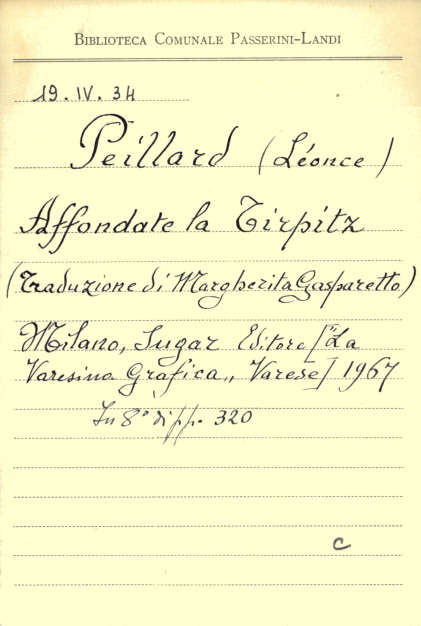 BIBLIOTECA COMUNALE PASSERINI-LANDI
19. IV. 34
Peillard (Léonce)
Affondate la Tirpitz
(Traduzione di Margherita Gasparetto)
Milano, Sugar Editore ["La
Varesina Grafica„ Varese] 1967
In 8° di pp. 320
C